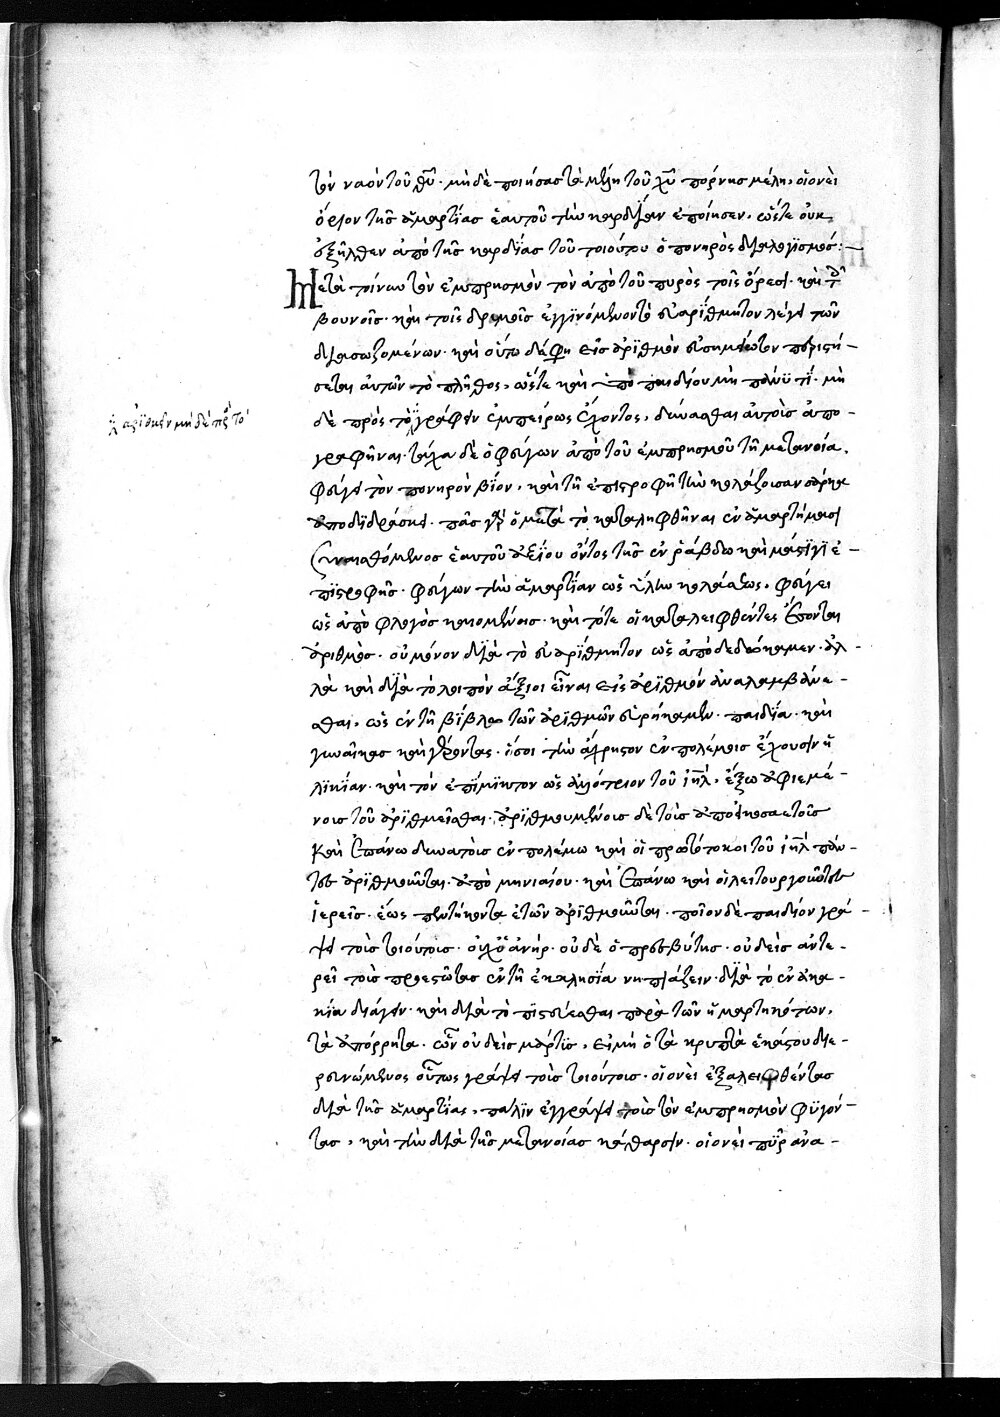 τὸν ναὸν τοῦ θῦ· μὴ δὲ ποιήσας τὰ μέλη τοῦ χῦ πόρνης μέλη, οἱονεὶ
ὅριον τῆς ἁμαρτίας ἑαυτοῦ τὴν καρδίαν ἐποίησεν, ὥστε οὐκ
ἐξῆλθεν ἀπὸ τῆς καρδίας τοῦ τοιούτου ὁ πονηρὸς διαλογϊσμός:
Μετὰ τοίνυν τὸν ἐμπρησμὸν τὸν ἀπὸ τοῦ πυρὸς τοῖς ὄρεσι· καὶ τοῖς
βουνοῖς· καὶ τοῖς δρυμοῖς ἐγγϊνόμενον τὸ εὐαρίθμητον λέγει τῶν
διασωζομένων· καὶ οὕτω δὲ φη εἰς ἀρϊθμὸν εὐσημείωτον περιστή-
σεται αὐτῶν τὸ πλῆθος, ὥστε καὶ ὑπὸ παιδίου μὴ πολύ τϊ· μὴ
δὲ πρὸς τὸ γράφειν ἐμπείρως ἔχοντος, δύνασθαι αὐτοῖς ἀπο-
γραφῆναι· τάχα δὲ ὁ φεύγων ἀπὸ τοῦ ἐμπρησμοῦ τῇ μετανοία,
φεύγει τὸν πονηρὸν βίον, καὶ τῇ ἐπιστροφῇ τὴν κολάζουσαν σάρκα
ἀποδϊδράσκει· πᾶς γὰρ ὁ μετὰ τὸ καταληφθῆναι ἐν ἁμαρτήμασι
συναισθόμενος ἑαυτοῦ ἀξίου ὄντος τῆς ἐν ῥάβδω καὶ μάστϊγϊ ἐ-
πϊστροφῆς· φεύγων τὴν ἁμαρτίαν ὡς ὕλην κολάσεως, φεύγει
ὡς ἀπὸ φλογὸς καιομένοις· καὶ τότε οἱ καταλειφθέντες ἔσονται
ἀριθμὸς· οὐ μόνον διὰ τὸ εὐαρίθμητον ὡς ἀποδεδώκαμεν· ἀλ-
λὰ καὶ διὰ τὸ λοιπὸν ἄξιοι εἶναι εἰς ἀρϊθμὸν ἀναλαμβάνε-
σθαι, ὡς ἐν τῇ βίβλω τῶν ἀρϊθμῶν εὑρήκαμεν· παιδία· καὶ
γυναῖκας καὶ γέροντας· ὅσοι τὴν ἄχρηστον ἐν πολέμοις ἔχουσιν ἡ
λϊκίαν· καὶ τὸν ἐπίμϊκτον ὡς ἀλλότριον τοῦ ἰηλ, ἔξω ἀφιεμέ-
νοις τοῦ ἀρϊθμεῖσθαι· ἀρϊθμουμένοις δὲ τοῖς ἀπὸ εἰκοσαετοῖς
Καὶ ἐπάνω δυνατοῖς ἐν πολέμω καὶ οἱ πρωτότοκοι τοῦ ἰηλ πάν-
τες ἀρϊθμοῦνται· ἀπὸ μηνιαίου· καὶ ἐπάνω καὶ οἱ λειτουργοῦντες
ἱερεῖς· ἕως πεντήκοντα ἐτῶν ἀρϊθμοῦνται· ποῖον δὲ παιδίον γρά
ψει τοὺς τοιούτους· οὐχ ὁ ἀνήρ· οὐδὲ ὁ πρεσβύτης· οὐδεὶς ἀντε-
ρεῖ τοὺς προεστῶτας ἐν τῇ ἐκκλησία νηπιάζειν· διὰ τὸ ἐν ἀκα-
κία διάγειν· καὶ διὰ τὸ πϊστεύεσθαι παρὰ τῶν ἡμαρτηκότων,
τὰ ἀπόρρητα· ὧν οὐδεὶς μάρτϋς, εἰ μὴ ὁ τὰ κρυπτὰ ἑκάστου διε-
ρευνώμενος οὕτως γράψει τοὺς τοιούτους· οἱονεὶ ἐξαλειφθέντας
διὰ τῆς ἁμαρτίας, πάλϊν ἐγγράψει τοὺς τὸν ἐμπρησμὸν φϋγόν-
τας, καὶ τὴν διὰ τῆς μετανοίας κάθαρσιν· οἱονεὶ πῦρ ἀνα-